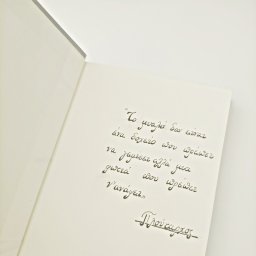 "Το μυαλό δεν είναι
ένα δοχείο που πρέπει
να γεμίσει αλλά μια
φωτιά που πρέπει
ν'ανάψει.
Πλούταρχος